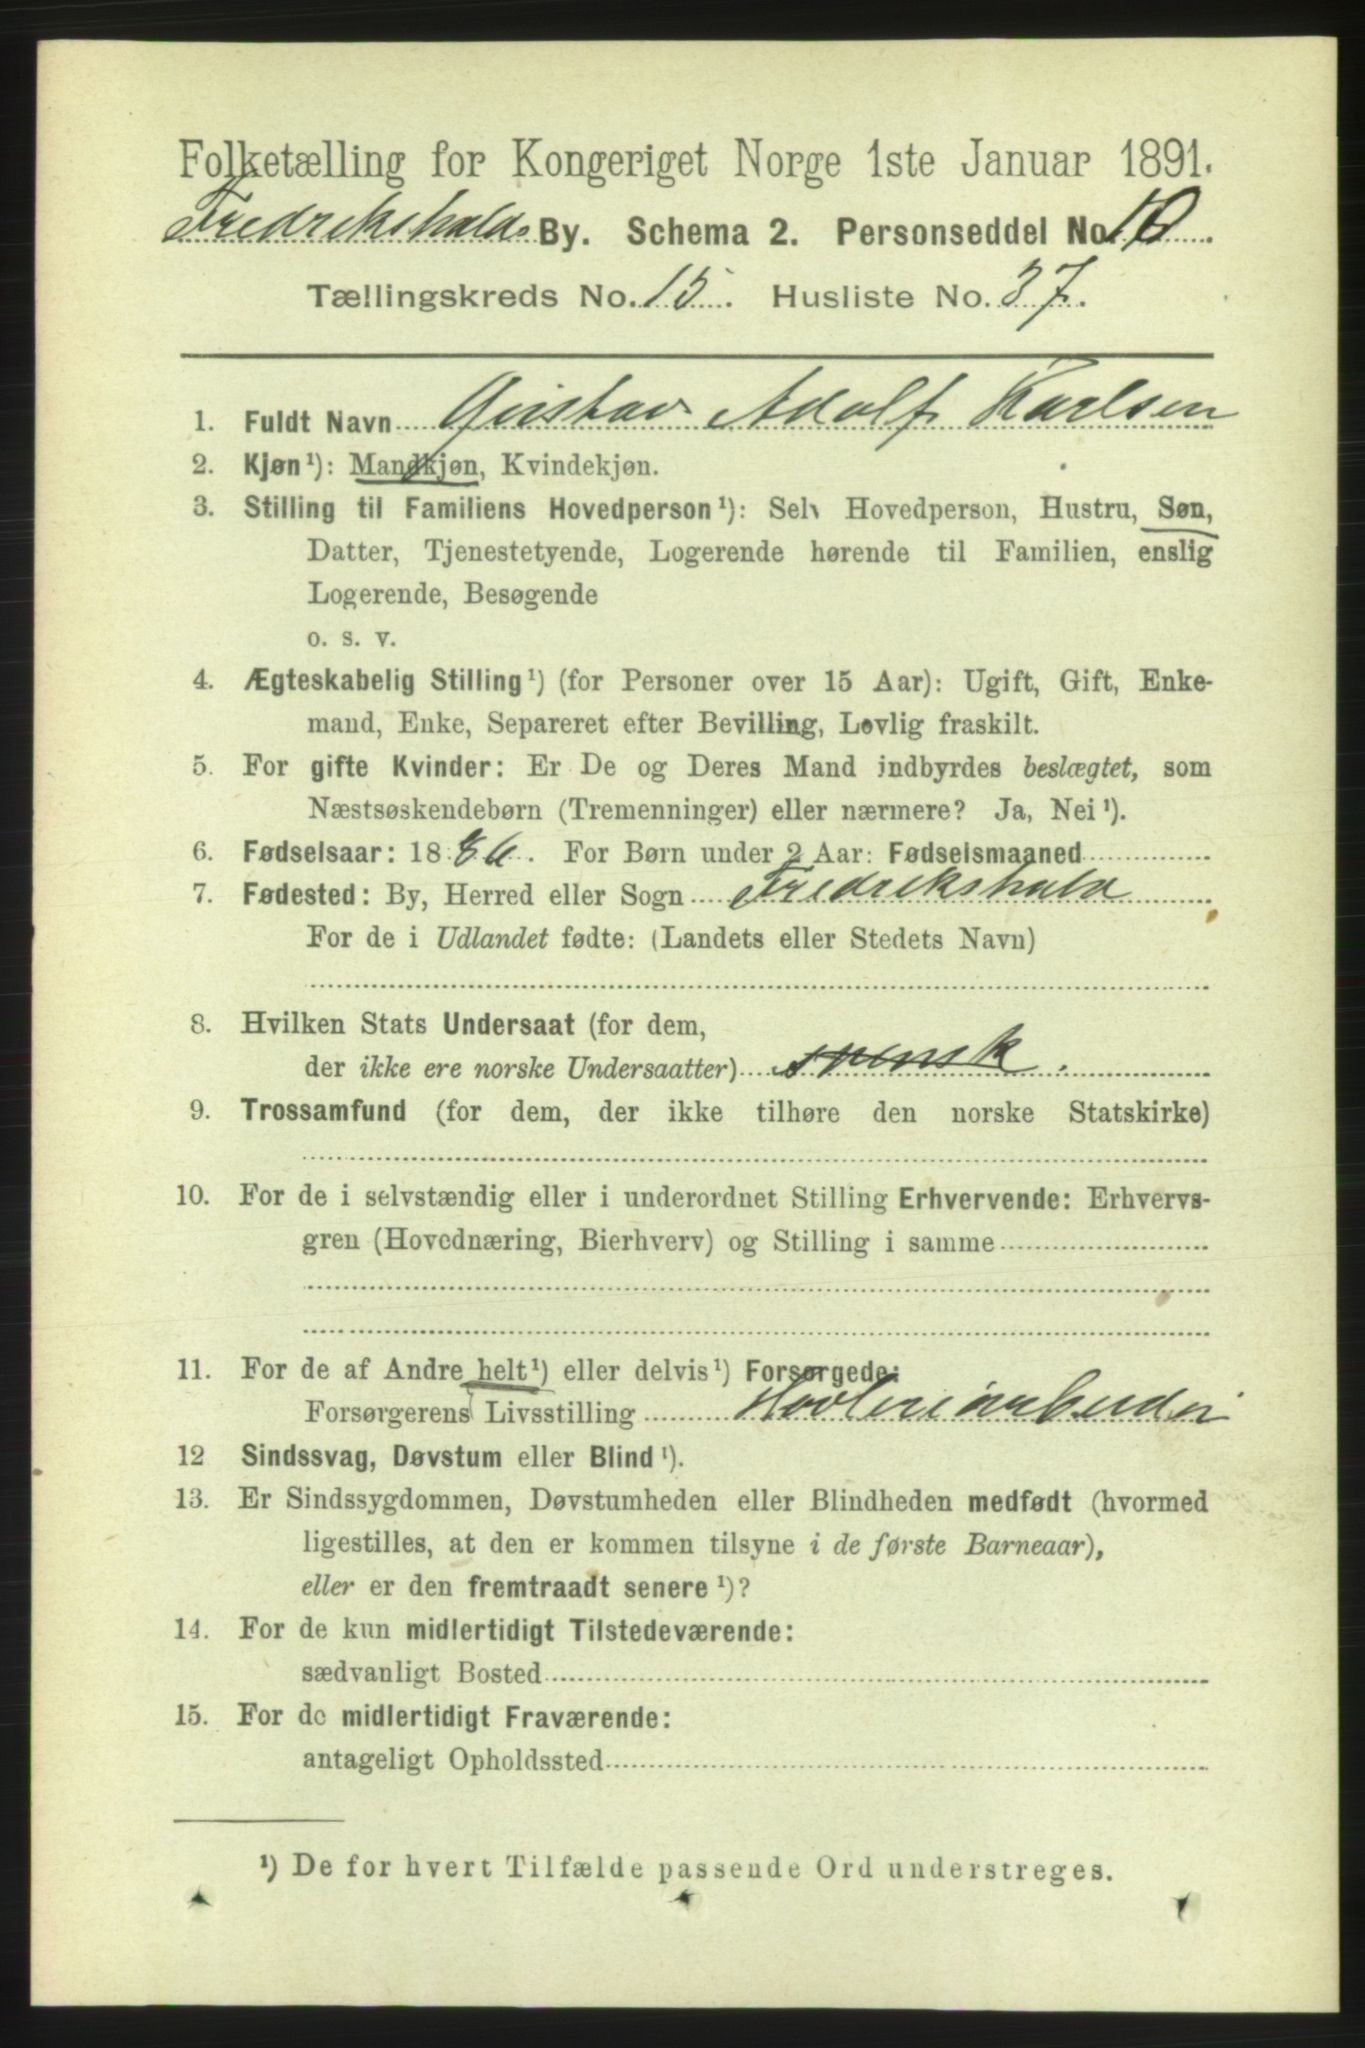 Folketælling for Kongeriget Norge 1ste Januar 1891.
Fredrikshalds By. Schema 2. Personseddel No. 10
Tællingskreds No. 15. Husliste No. 37.
1. Fuldt Navn Gustav Adolf Karlsen
2. Kjøn¹): Mandkjøn, Kvindekjøn.
3. Stilling til Familiens Hovedperson¹): Selv Hovedperson, Hustru, Søn,
Datter, Tjenestetyende, Logerende hørende til Familien, enslig
Logerende, Besøgende
o. s. v.
4. Ægteskabelig Stilling¹) (for Personer over 15 Aar): Ugift, Gift, Enke-
mand, Enke, Separeret efter Bevilling, Lovlig fraskilt.
5. For gifte Kvinder: Er De og Deres Mand indbyrdes beslægtet, som
Næstsøskendebørn (Tremenninger) eller nærmere? Ja, Nei¹).
6. Fødselsaar: 1886. For Børn under 2 Aar: Fødselsmaaned
7. Fødested: By, Herred eller Sogn Fredrikshald
For de i Udlandet fødte: (Landets eller Stedets Navn)
8. Hvilken Stats Undersaat (for dem,
der ikke ere norske Undersaatter) svensk.
9. Trossamfund (for dem, der ikke tilhøre den norske Statskirke)
10. For de i selvstændig eller i underordnet Stilling Erhvervende: Erhvervs-
gren (Hovednæring, Bierhverv) og Stilling i samme
11. For de af Andre helt¹) eller delvis¹) Forsørgede:
Forsørgerens Livsstilling Høvleriarbeider
12 Sindssvag, Døvstum eller Blind¹).
13. Er Sindssygdommen, Døvstumheden eller Blindheden medfødt (hvormed
ligestilles, at den er kommen tilsyne i de første Barneaar),
eller er den fremtraadt senere¹)?
14. For de kun midlertidigt Tilstedeværende:
sædvanligt Bosted
15. For de midlertidigt Fraværende:
antageligt Opholdssted
¹) De for hvert Tilfælde passende Ord understreges.